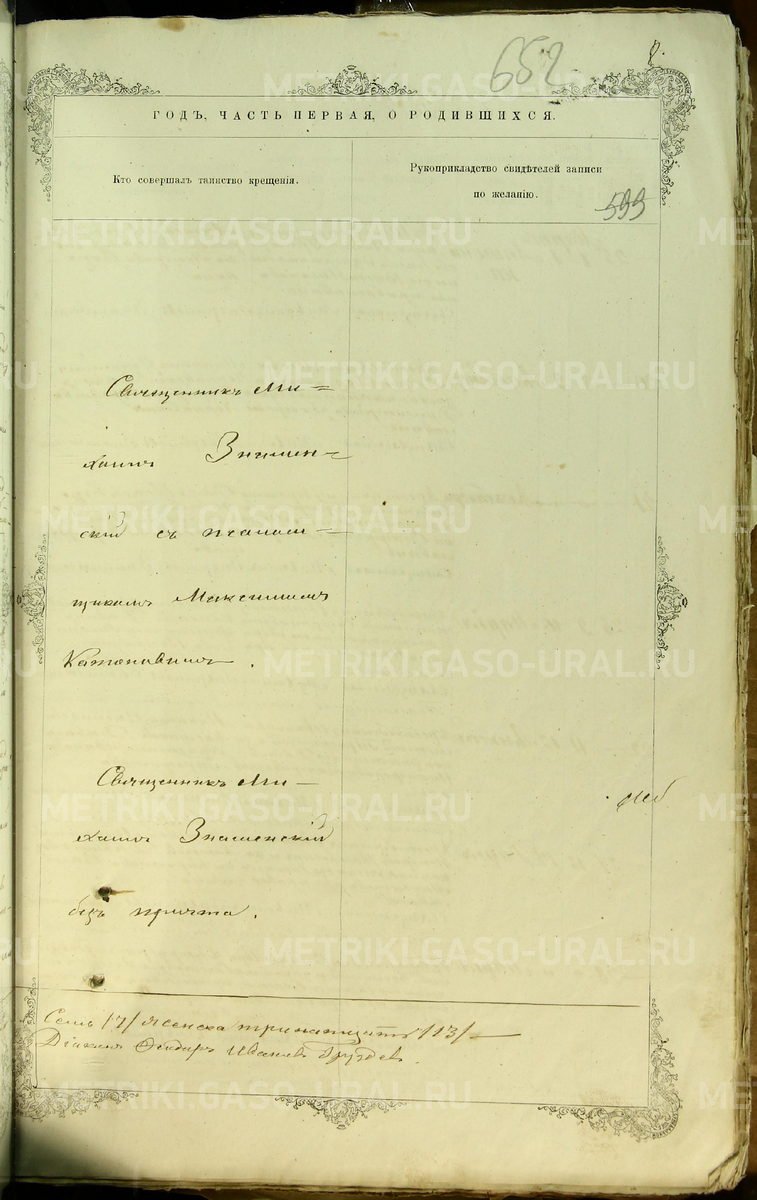 652
ГОДЪ, ЧАСТЬ ПЕРВАЯ, О РОДИВШИХСЯ.
Кто совершалъ таинство крещенія.
Рукоприкладство свидѣтелей записи
по желанію.
599
Священникъ Ми=
хаилъ Знамен-
скій съ псалом-
щикомъ Максимомъ
Священникъ Ми-
хаилъ Знаменскій
безъ причта.
Семь /7/ женска тринатцать /13/
Діаконъ Ѳеодоръ Ивановъ Груздев
METRIKI.GASO-URAL.RU